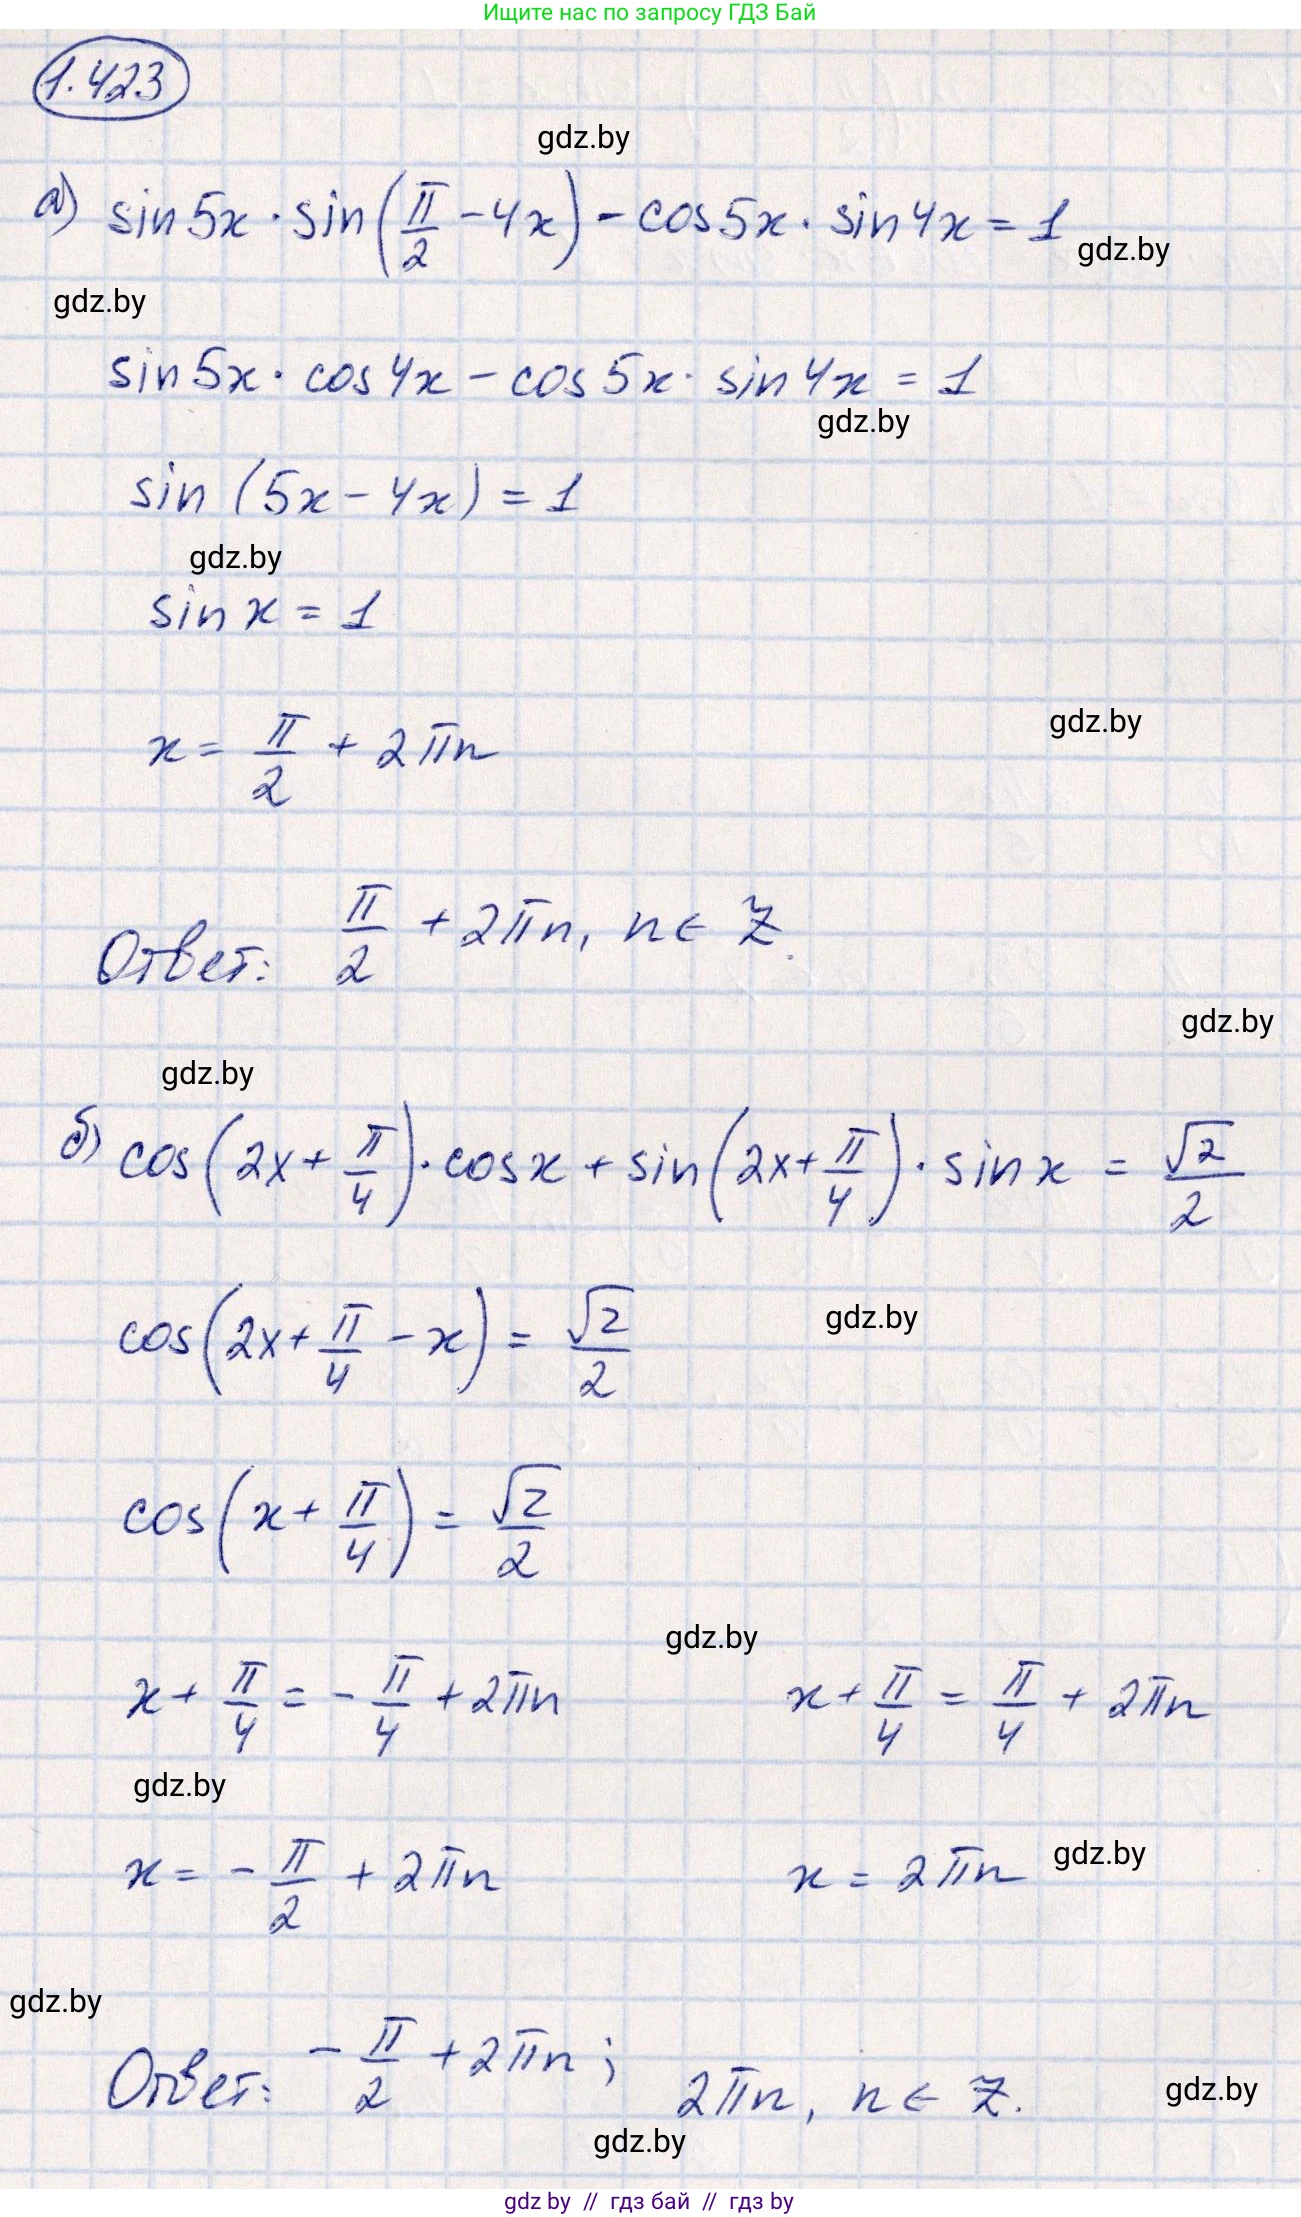 Ищите нас по запросу ГДЗ Бай
1.423
gdz.by
а) sin5x · sin(π/2 − 4x) − cos5x · sin4x = 1
gdz.by
gdz.by
sin5x · cos4x − cos5x · sin4x = 1
gdz.by
sin (5x − 4x) = 1
gdz.by
sin x = 1
gdz.by
x = π/2 + 2πn
Ответ: π/2 + 2πn, n ∈ Z.
gdz.by
gdz.by
б) cos(2x + π/4) · cosx + sin(2x + π/4) · sinx = √2/2
gdz.by
cos(2x + π/4 − x) = √2/2
cos(x + π/4) = √2/2
gdz.by
x + π/4 = −π/4 + 2πn x + π/4 = π/4 + 2πn
gdz.by
x = −π/2 + 2πn x = 2πn
gdz.by
gdz.by
Ответ: −π/2 + 2πn; 2πn, n ∈ Z.
gdz.by
gdz.by
gdz by // гдз бай // гдз by